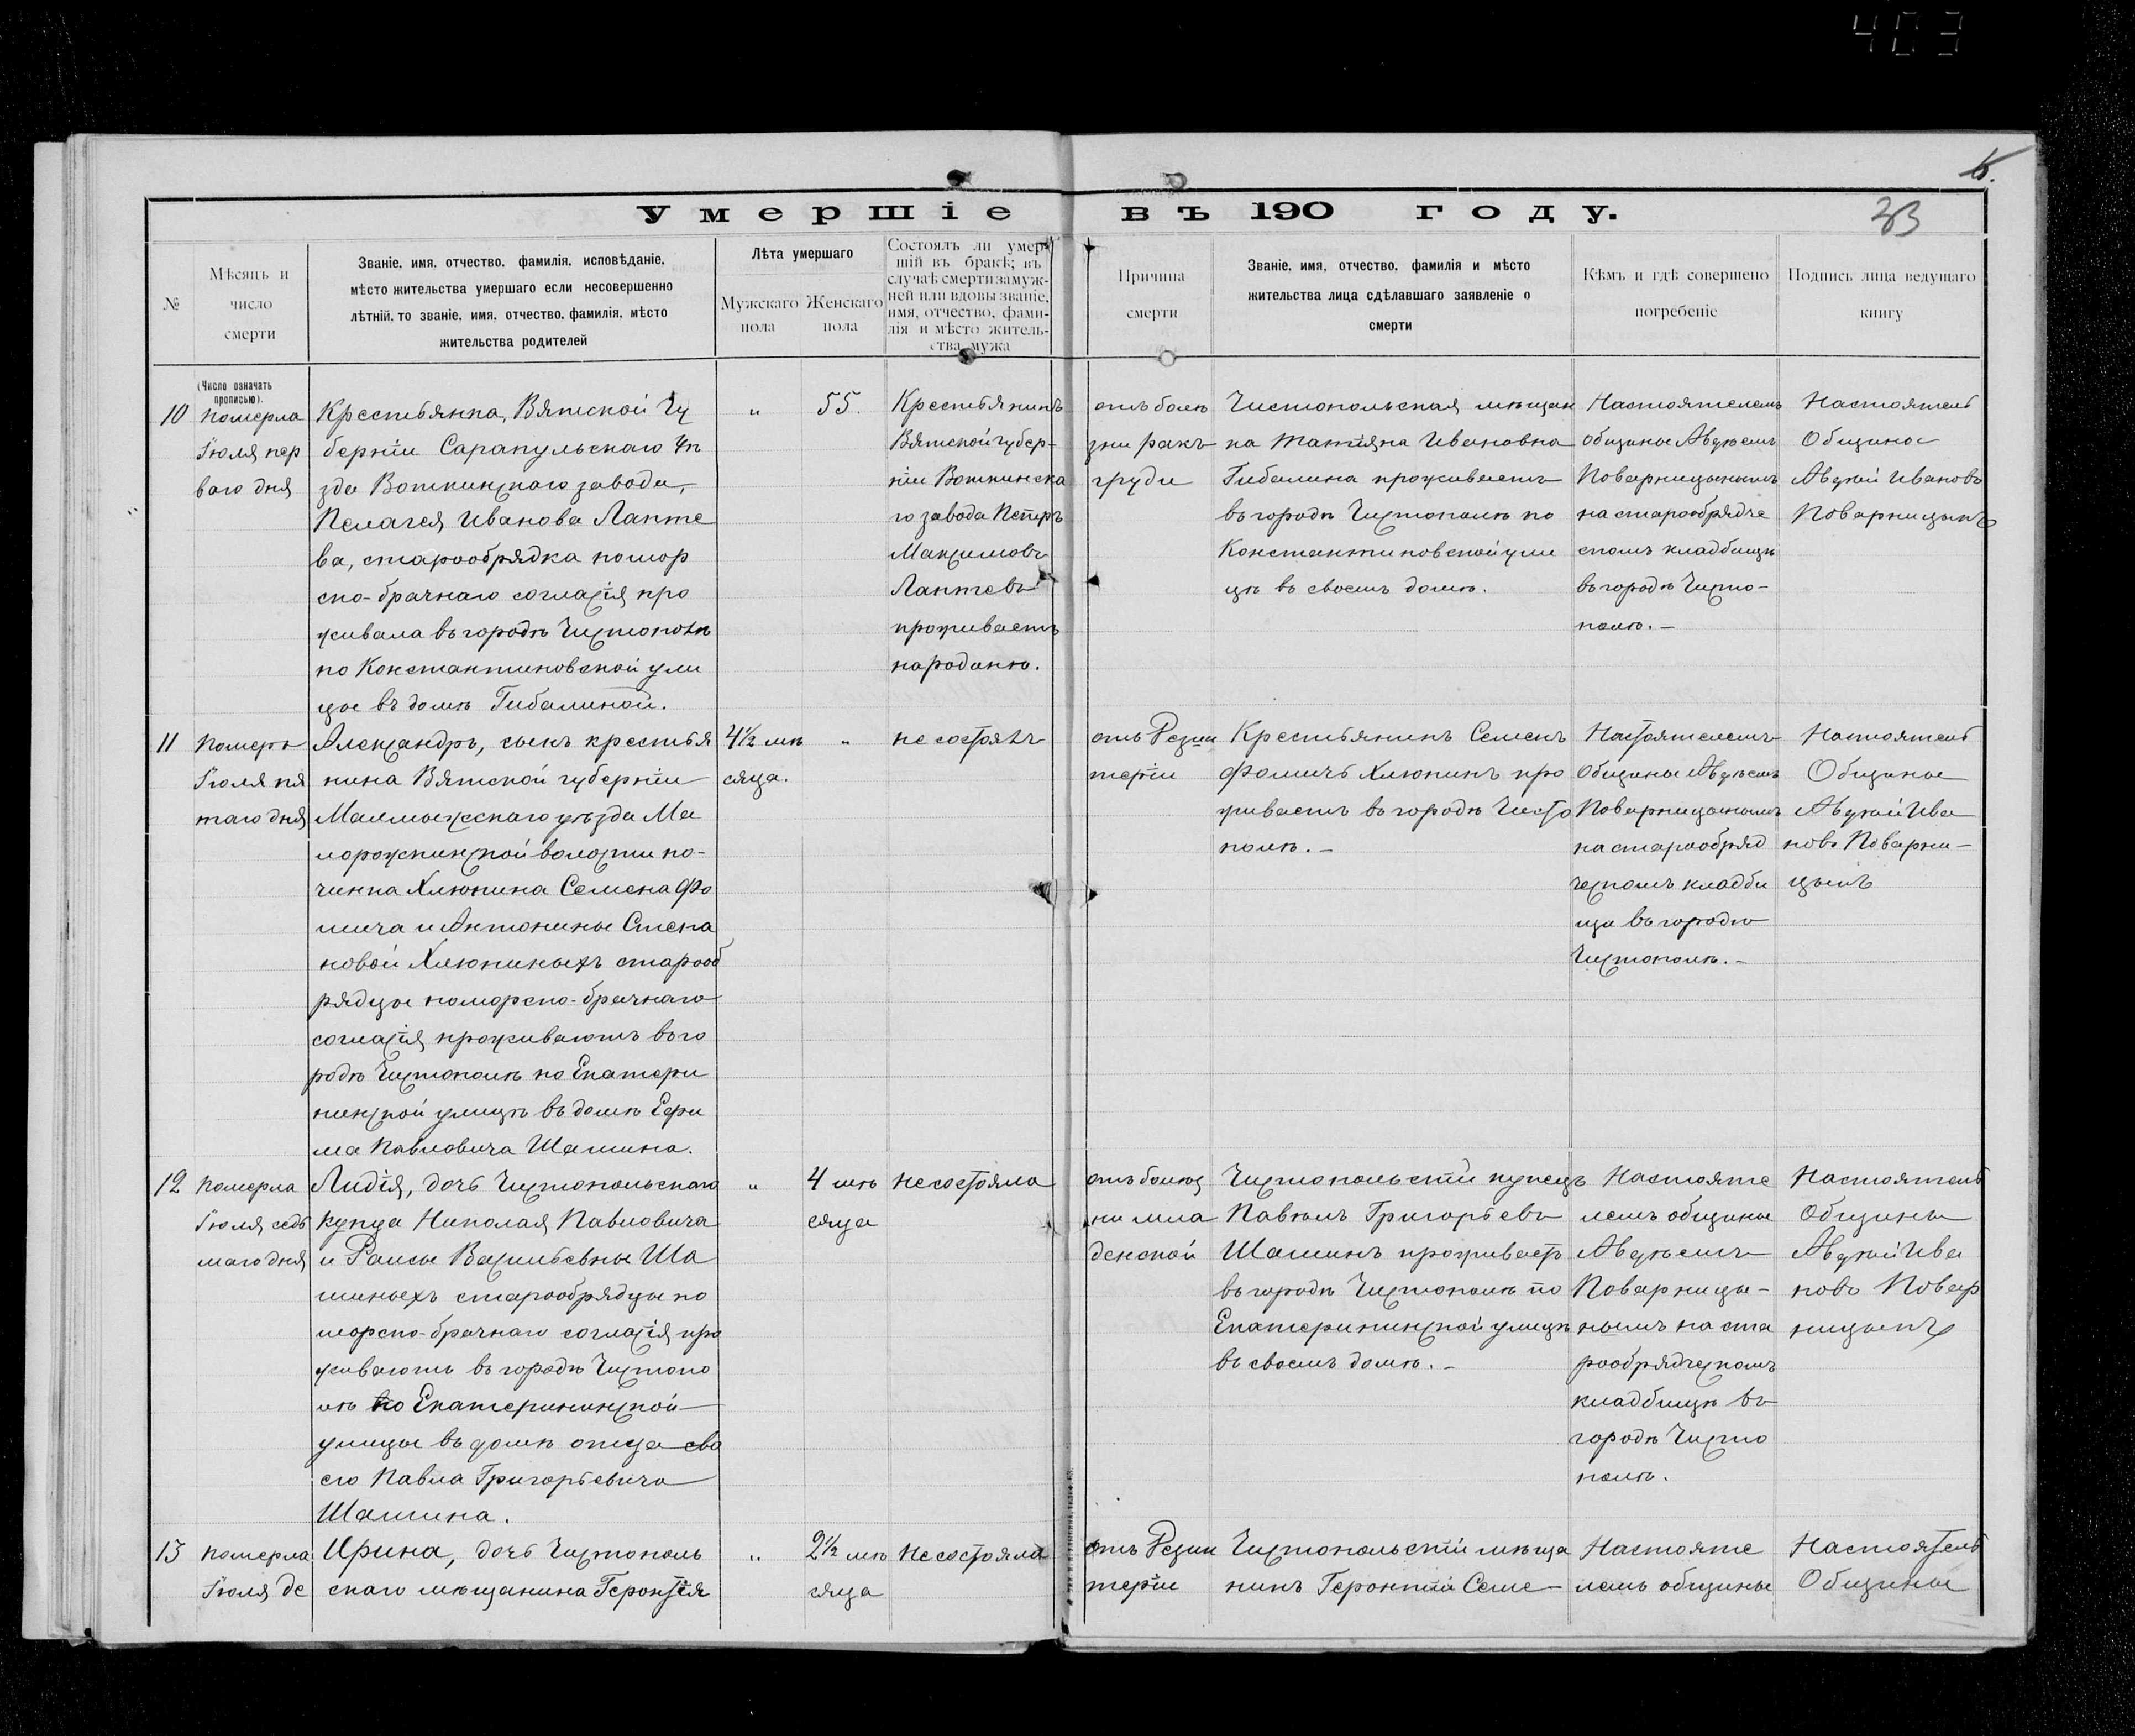 403
15.
Умершіе въ 190 году.
33
№
Мѣсяцъ и
число
смерти
Званіе, имя, отчество, фамилія, исповѣданіе,
мѣсто жительства умершаго если несовершенно
лѣтній, то званіе, имя, отчество, фамилія, мѣсто
жительства родителей
Лѣта умершаго
Мужскаго
пола
Женскаго
пола
Состоялъ ли умер-
шій въ бракѣ; въ
случаѣ смерти замуж-
ней или вдовы званіе,
имя, отчество, фами-
лія и мѣсто житель-
ства мужа
Причина
смерти
Званіе, имя, отчество, фамилія и мѣсто
жительства лица сдѣлавшаго заявленіе о
смерти
Кѣмъ и гдѣ совершено
погребеніе
Подпись лица ведущаго
книгу
(Число означать
прописью).
10
померла
Іюля пер
ваго дня
Крестьянка, Вятской Гу
берніи Сарапульскаго уѣ
зда Воткинскаго завода,
Пелагея Иванова Лапте
ва, старообрядка помор
ско-брачнаго согласія про
живала въ городѣ Чистополѣ
по Константиновской ули
цы въ домѣ Гибалиной.
"
55.
Крестьянинъ
Вятской губер-
ніи Воткинска
го завода Петръ
Максимовъ
Лаптевъ
проживаетъ
народинѣ.
отъ болѣ
зни ракъ
груди
Чистопольская мѣщан
ка Татіяна Ивановна
Гибалина проживаетъ
въ городѣ Чистополѣ по
Константиновской ули
цѣ въ своемъ домѣ.
Настоятелемъ
общины Авдѣемъ
Поварницынымъ
на старообрядче
скомъ кладбищѣ
въ городѣ Чисто-
полѣ.-
Настоятель
Общины
Авдѣй Ивановъ
Поварницынъ
11
померъ
Іюля пя
таго дня
Александръ, сынъ крестья
нина Вятской губерніи
Малмыжскаго уѣзда Ма
лорожкинской волости по-
чинка Хлюпина Семена Фо
мича и Антонины Степа
новой Хлюпиныхъ старооб
рядцы поморско-брачнаго
согласія проживаютъ въ го
родѣ Чистополѣ по Екатери
нинской улицѣ въ домѣ Ефи
ма Павловича Шашина.
4½ мѣ
сяца.
"
не состоялъ
отъ Дезин
теріи
Крестьянинъ Семенъ
Фомичъ Хлюпинъ про
живаетъ въ городѣ Чисто
полѣ.-
Настоятелемъ
общины Авдѣемъ
Поварницынымъ
на старообряд
ческомъ кладби
ща въ городѣ
Чистополѣ.-
Настоятель
Общины
Авдѣй Ива
новъ Поварни-
цынъ
12
померла
Іюля седь
маго дня
Лидія, дочь Чистопольскаго
купца Николая Павловича
и Раисы Васильевны Ша
шиныхъ старообрядцы по
морско-брачнаго согласія про
живаютъ въ городѣ Чистопо
лѣ по Екатерининской
улицы въ домѣ отца сво
его Павла Григорьевича
Шашина.
"
4 мѣ
сяца
не состояла
отъ болѣз
ни мла
денской
Чистопольскій купецъ
Павелъ Григорьевъ
Шашинъ проживаетъ
въ городѣ Чистополѣ по
Екатерининской улицѣ
въ своемъ домѣ.-
Настояте
лемъ общины
Авдѣемъ
Поварницы-
нымъ на ста
рообрядческомъ
кладбищѣ въ
городѣ Чисто
полѣ.
Настоятель
Общины
Авдѣй Ива
новъ Повар
ницынъ
13
померла
Іюля де
Ирина, дочь Чистополь
скаго мѣщанина Геронтія
"
2½ мѣ
сяца
не состояла
отъ Дезин
теріи
Чистопольскій мѣща
нинъ Геронтій Семе-
Настояте
лемъ общины
Настоятель
Общины